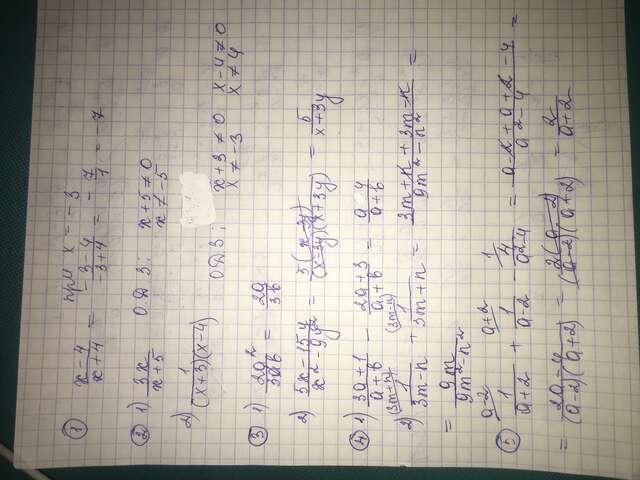 ① (x-4)/(x+4) при x = -3
= (-3-4)/(-3+4) = -7/1 = -7
② 1) 3x/(x+5) ОДЗ: x+5≠0
x≠-5
2) 1/((x+3)(x-4)) ОДЗ: x+3≠0 x-4≠0
x≠-3 x≠4
③ 1) 2a²/3ab = 2a/3b
2) (5x-15y)/(x²-9y²) = 5(x-3y)/((x-3y)(x+3y)) = 5/(x+3y)
④ 1) (3a+1)/(a+b) - (2a+3)/(a+b)
2) 1/(3m-n) (3m+n) + 1/(3m+n) (3m-n) = (3m+n+3m-n)/(9m²-n²) =
⑤ 1/(a+2) (a-2) + 1/(a-2) (a+2) - 4/(a²-4) (1) = (a-2+a+2-4)/(a²-4) =
= (2a-4)/((a-2)(a+2)) = 2(a-2)/((a-2)(a+2)) = 2/(a+2)